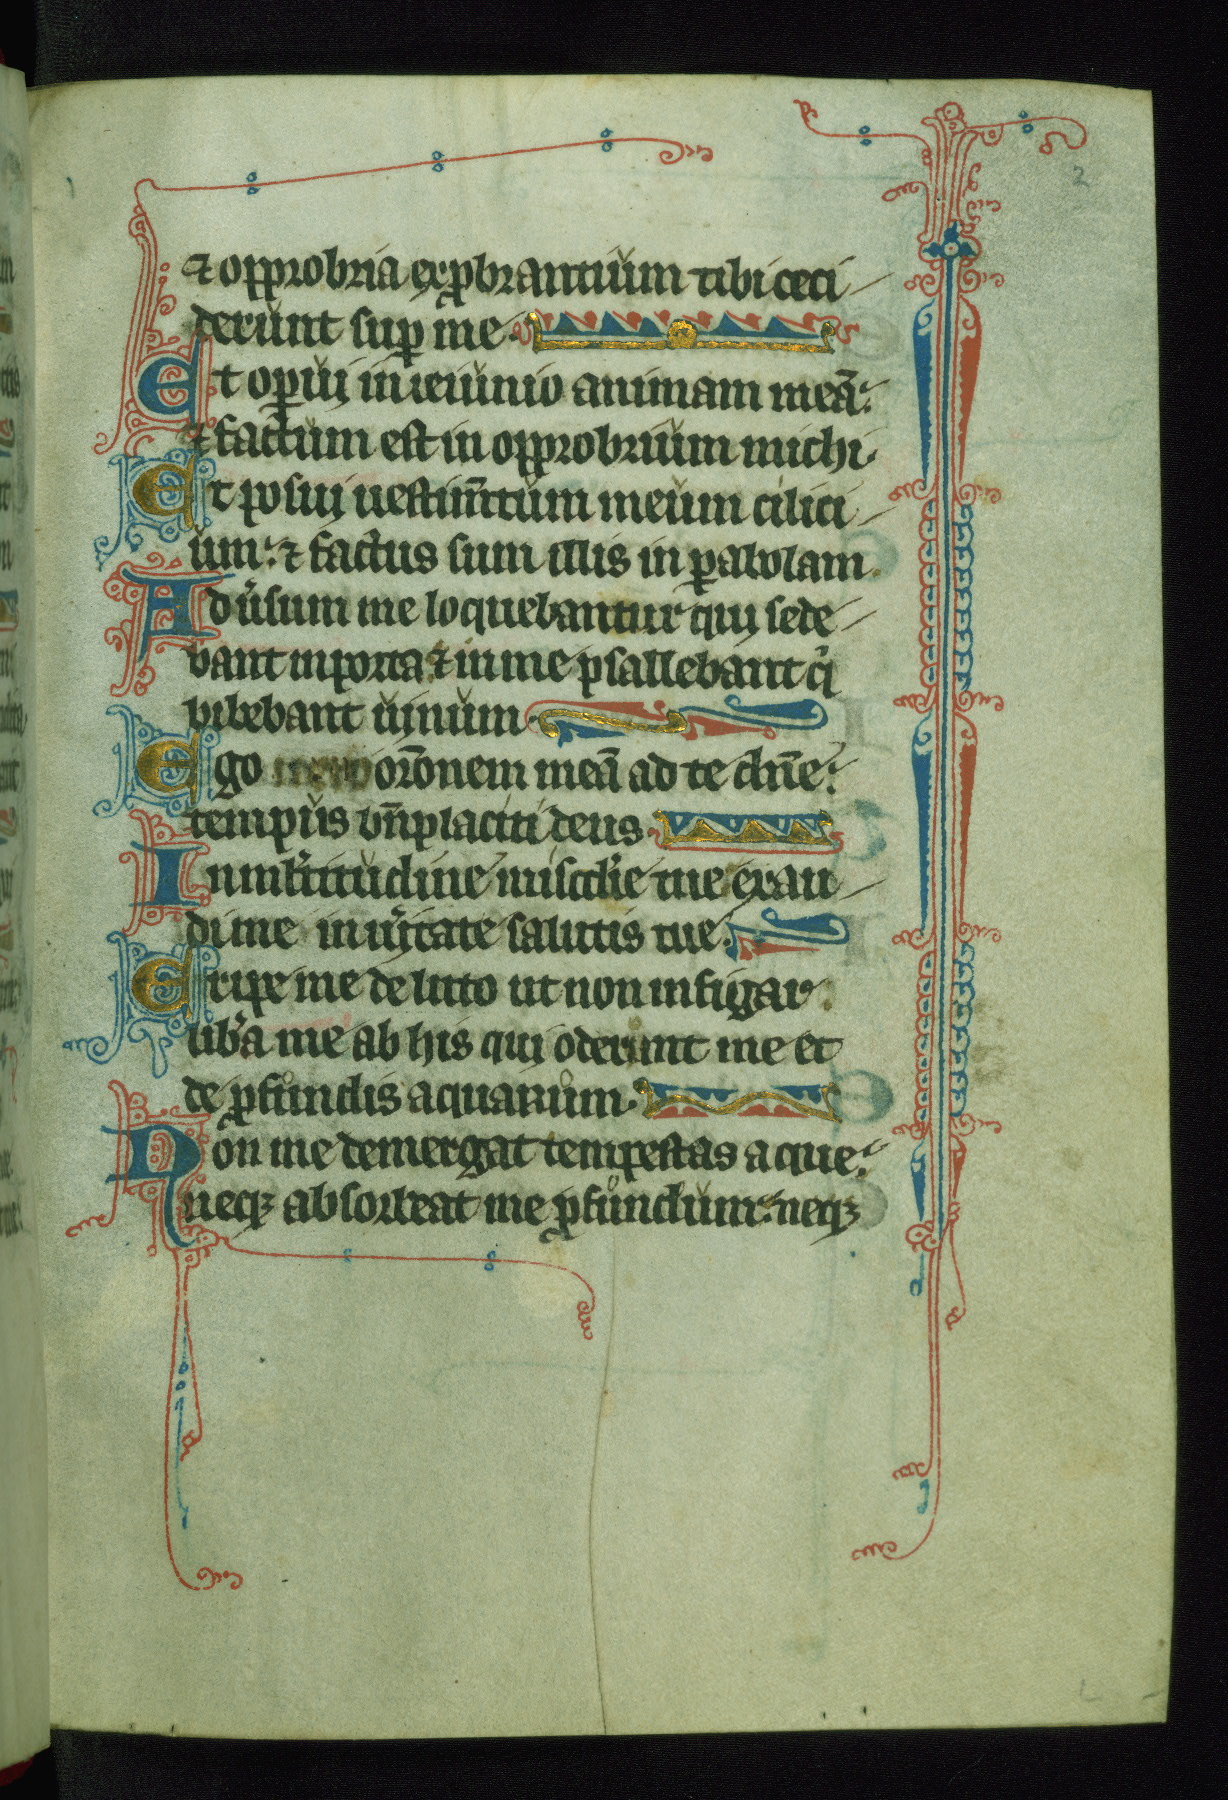 ⁊ opprobria exꝓbrantium tibi ceci
derunt suꝑ me.
Et oꝑui in ieiunio animam meā:
⁊ factum est in opprobrium michi.
Et posui uestim̄tum meum cilici
um: ⁊ factus sum illis in ꝑabolam.
Adu᷑sum me loquebantur qui sede
bant in porta ⁊ in me psallebant q̇
bibebant uinum.
Ego orōnem meā ad te dn̄e:
tempus bn̄placiti deus.
In ml᷑titudine mis᷑cdie tue exau
di me in u᷑itate salutis tue.
Eripe me de luto ut non infigar:
lib᷑a me ab his qui oderunt me et
de ꝓfundis aquarum.
Non me demergat tempestas aque:
neqꝫ absorbeat me ꝓfundum: neqꝫ
2